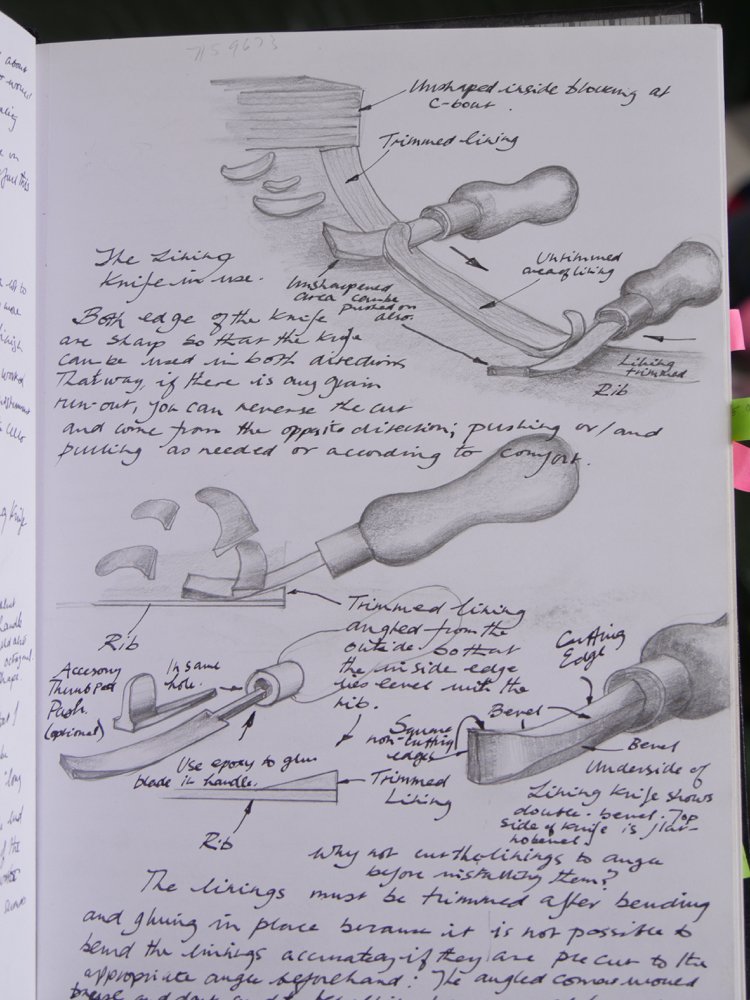 Unshaped inside blocking at
C-bout.
Trimmed lining
The Lining
Knife in use.
Unsharpened
area can be
pushed on
also.
Untrimmed
area of lining
Lining
trimmed
Rib
Both edge of the knife
are sharp so that the knife
can be used in both directions
That way, if there is any grain
run-out, you can reverse the cut
and come from the opposite direction; pushing or/and
pulling as needed or according to comfort.
Rib
Trimmed lining
angled from the
outside so that
the inside edge
lies level with the
rib.
Accesory
Thumb Pad
Push.
(optional)
In same
hole.
Use epoxy to glue
blade in handle.
Trimmed
Lining
Rib
Cutting
Edge
Bevel
Square
non-cutting
edges
Bevel
Underside of
Lining Knife shows
double-bevel. Top
side of knife is flat-
no bevel.
Why not cut the linings to angle
before installing them?
The linings must be trimmed after bending
and gluing in place because it is not possible to
bend the linings accurately if they are pre cut to the
appropriate angle beforehand: The angled corners would